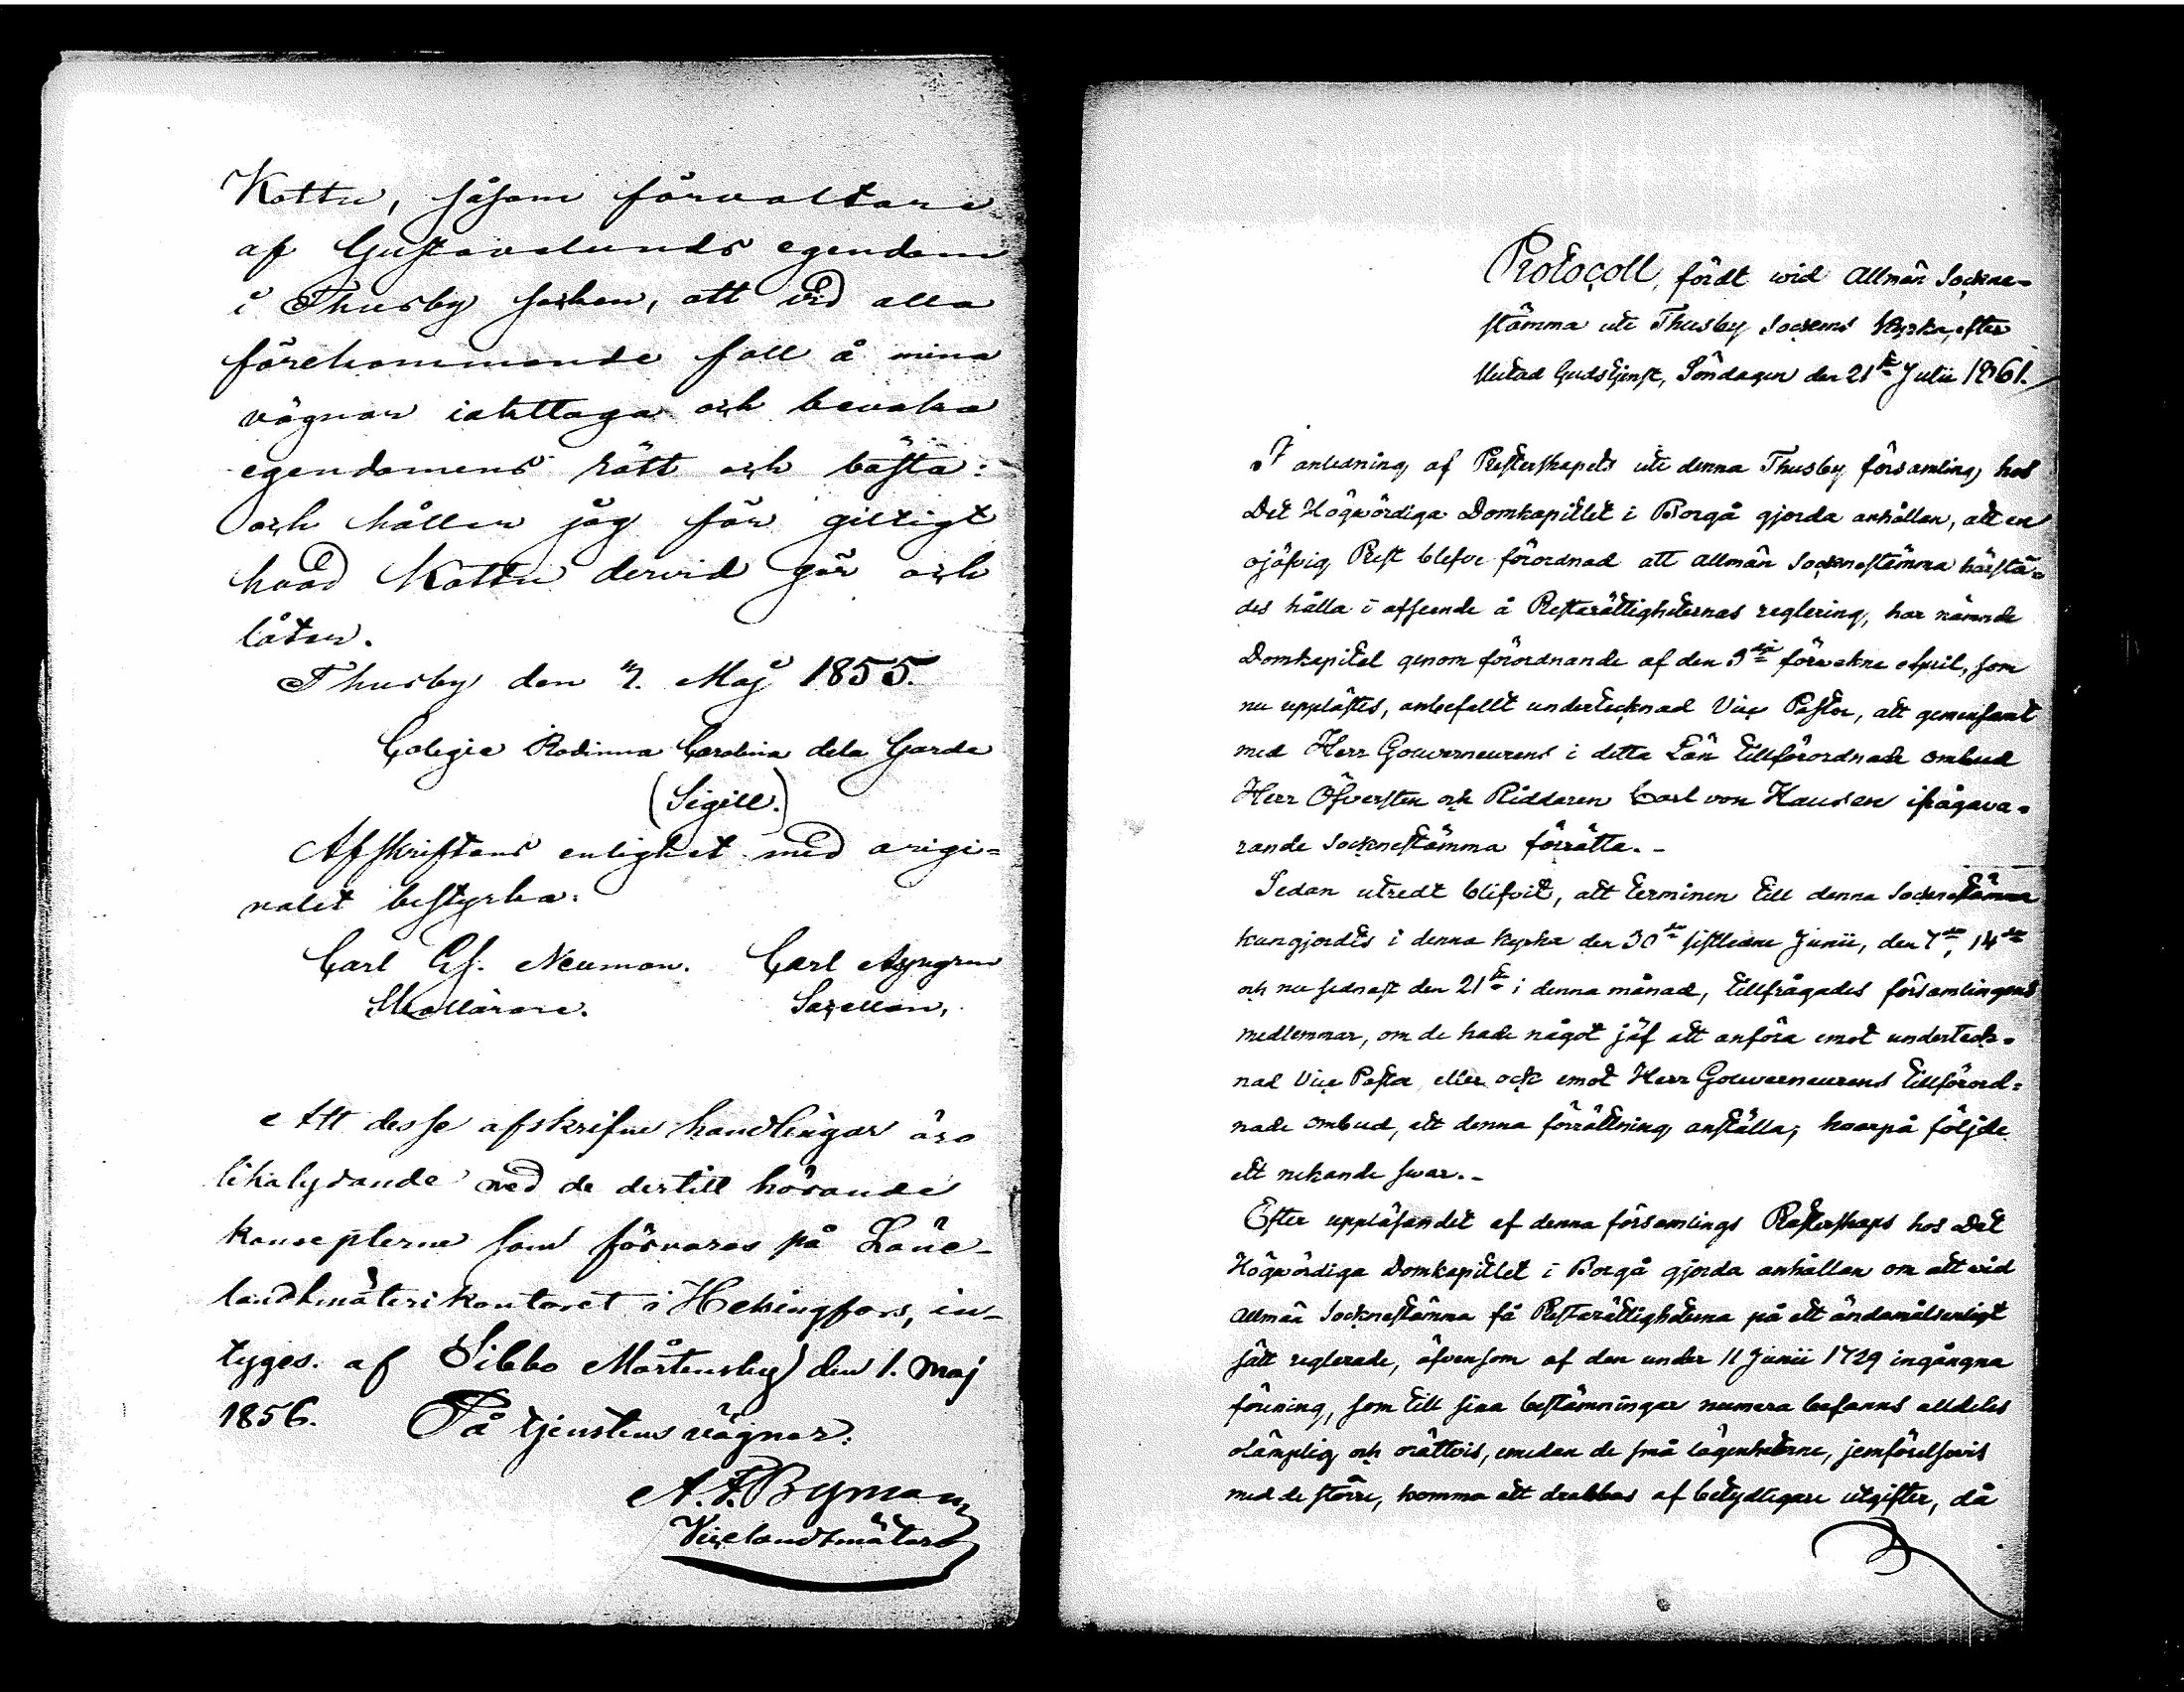 Kottu, såsom förvaltare
af Gustavelunds egendom
i Thusby socken, att vid alla
förekommande fall å mina
vägnar iakttaga och bevaka
egendomens rätt och bästa:
och håller jag för giltigt
hvad Kottu dervid gör och
låter.
Thusby den 7. Maj 1855.
Colegie Rådinna Carolina dela Garde
(Sigill.)
Afskriftens enlighet med origi=
nalet bestyrka:
Carl Gf. Neuman. Carl
Skollärare.
Att desse afskrifne handlingar äro
likalydande med de dertill hörande
konsepterne som förvaras på Läne-
landtmäterikontoret i Helsingfors, in-
tyges. af Sibbo Mårtensby den 1. Maj
1856. På tjenstens vägnar:
A. F. Byman
Vicelandtmätare
Protocoll, fördt wid Allmän Sockne=
stämma uti Thusby Sockens Kyrka, efter
slutad Gudstjenst, Söndagen den 21ste Julii 1861.
I anledning af Presterskapets uti denna Thusby församling, hos
Det Högwördiga Domkapitlet i Borgå gjorda anhållan, att en
ojäfvig Prest blefve förordnad att allmän Socknestämma härstä=
des hålla i afseende å Prestarättigheternas reglering, har nämnde
Domkapitel genom förordnande af den 9de förwekne April, som
nu upplästes, anbefallt undertecknad Vice Pastor, att gemensamt
med Herr Gouverneurens i detta Län tillförordnade ombud
Herr Öfversten och Riddaren Carl von Kausen ifrågava=
rande Socknestämma förrätta.-
Sedan utredt blifvit, att terminen till denna Socknestämma
kungjordts i denna kyrka den 30de sistledne Junii, den 7de, 14de
och nu sednast den 21ste i denna månad, tillfrågades församlingens
medlemmar, om de hade något jäf att anföra emot underteck=
nad Vice Pastor eller ock emot Herr Gouverneurens tillförord=
nade ombud, att denna förrättning anställa; hvarpå följde
ett nekande swar.-
Efter uppläsandet af denna församlings Presterskaps hos Det
Högwördiga Domkapitlet i Borgå gjorda anhållan om att wid
Allmän Socknestämma få Prestarättigheterna på ett ändamålsenligt
sätt reglerade, äfvensom af den under 11 Junii 1729 ingångna
förening, som till sina bestämningar numera befanns alldeles
olämplig och orättvis, emedan de små lägenheterne, jemförelsevis
med de större, komma att drabbas af betydligare utgifter, då